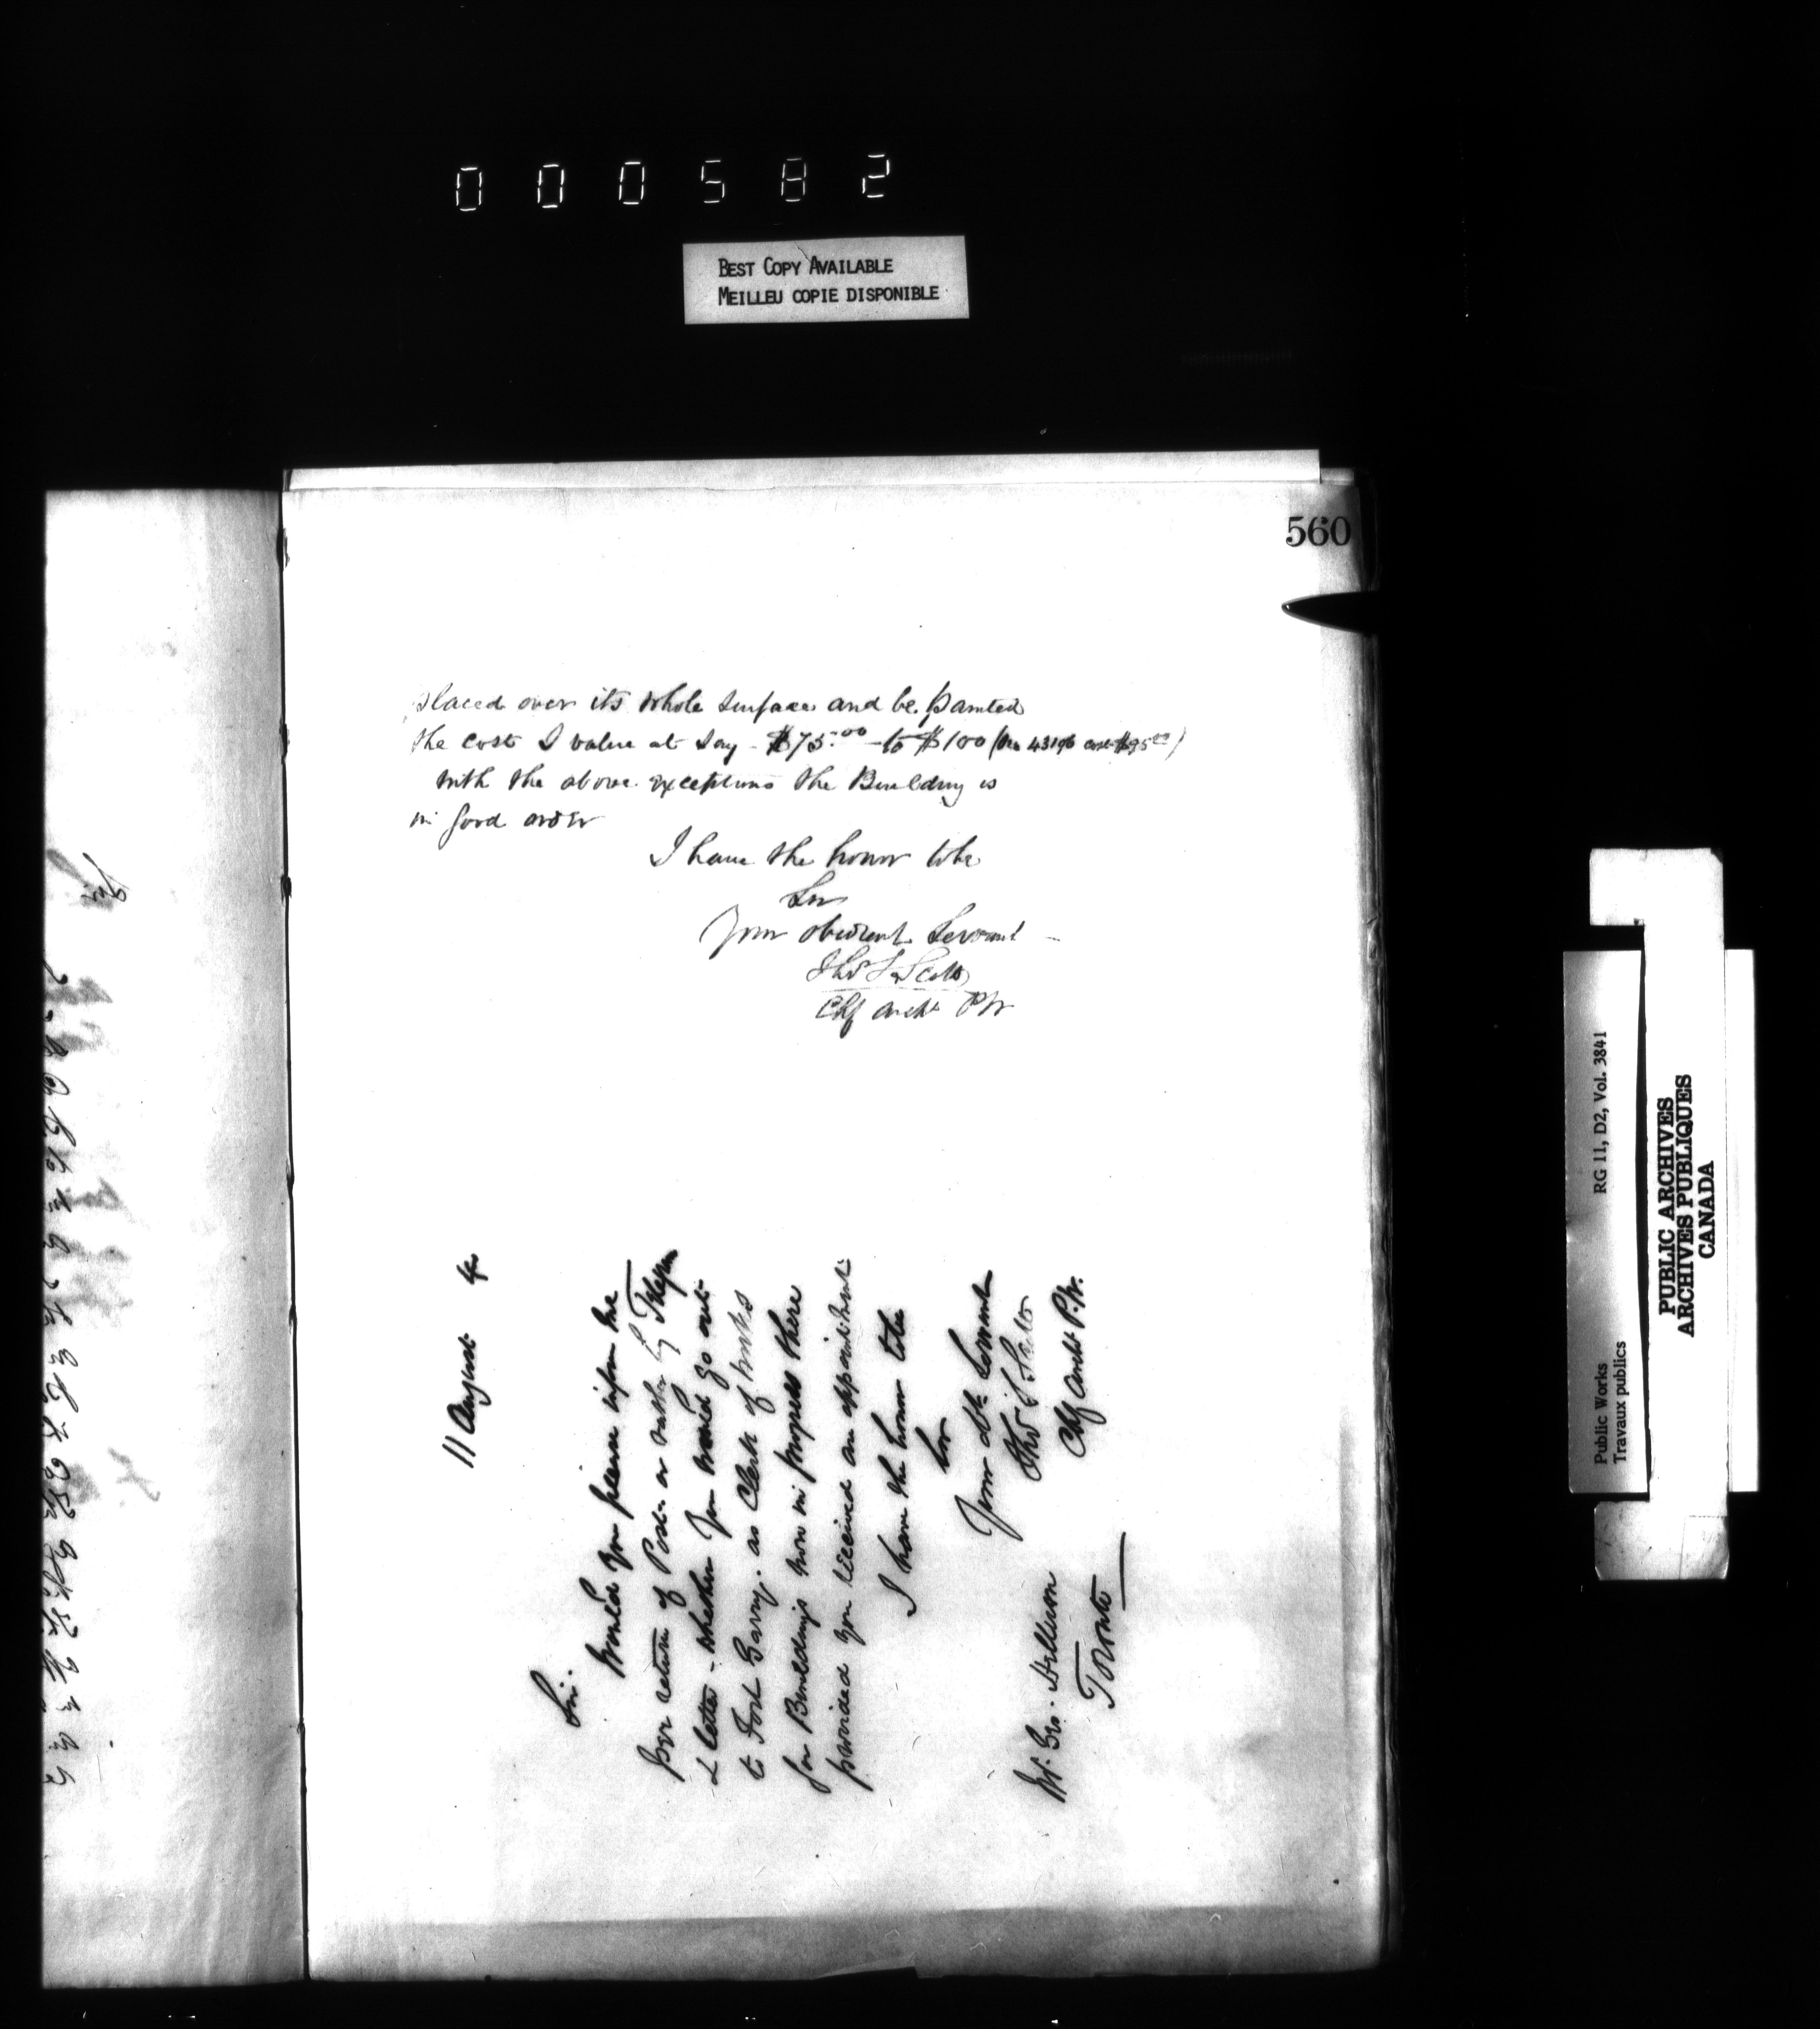 000582
BEST COPY AVAILABLE
MEILLEU COPIE DISPONIBLE
560
placed over its whole surface and be painted
the cost I value at say - $75.00 - to $100 (see 43196 cost $95.00)
with the above exceptions the Building is
in good order
I have the honor to be
Sir
Your obedient Servant
Thos S Scott
Chf Archt PW
11 August 4
Sir.
Would you please inform me
per return of Post or rather by Telegram
& letter - whether you would go out
to Fort Garry. as Clerk of Works
for Buildings now in progress there
provided you received an appointment
I have the honor to be
Sir
Your Obt. Servant
Thos S Scott
Chf Archt P.W.
Mr. Geo.
Toronto
RG 11, D2, Vol. 3841
Public Works
Travaux publics
PUBLIC ARCHIVES
ARCHIVES PUBLIQUES
CANADA